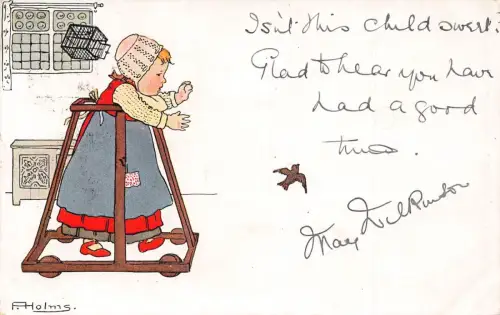 Isn't this child sweet?
Glad to hear you have
had a good
time.
May Wilkinson
F. Holms.